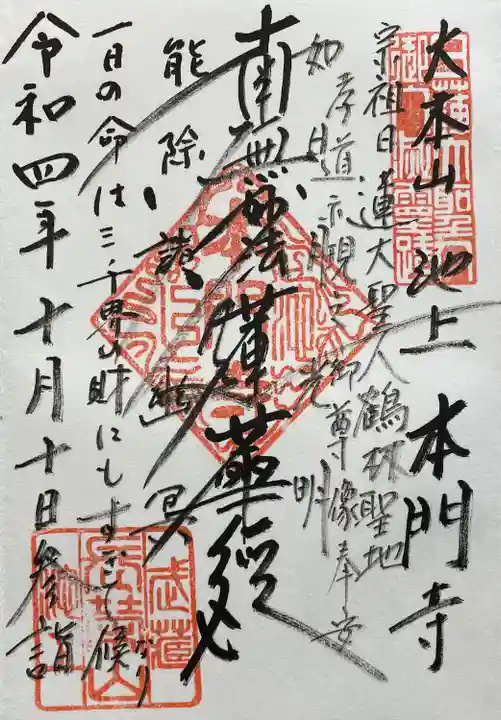 大本山 池上 本門寺
宗祖日蓮大聖人鶴林聖地
孝道示現之御尊像奉安
如日月光明
南無妙法蓮華経
能除諸幽冥
一日の命は三千界の財にもすぎて候なり
令和四年十月十日参詣
武蔵
長榮山